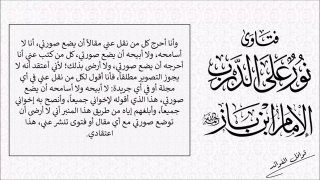 فتاوى
نور على الدرب
الإمام ابن باز
وأنا أحرج كل من نقل عني مقالاً أن يضع صورتي، أنا لا
أسامحه، ولا أبيحه أن يضع صورتي، كل من كتب عني أنا
أحرجه أن يضع صورتي، ولا أرضى بذلك؛ لأني أعتقد أنه لا
يجوز التصوير مطلقاً، فأنا أقول لكل من نقل عني في أي
مجلة أو في أي جريدة: لا أبيحه ولا أسامحه أن يضع
صورتي، هذا الذي أقوله لإخواني جميعاً، وأنصح به إخواني
جميعاً، وأبلغهم إياه من طريق هذا المنبر أني لا أرضى أن
توضع صورتي مع أي مقال أو فتوى تنشر عني، هذا
اعتقادي.